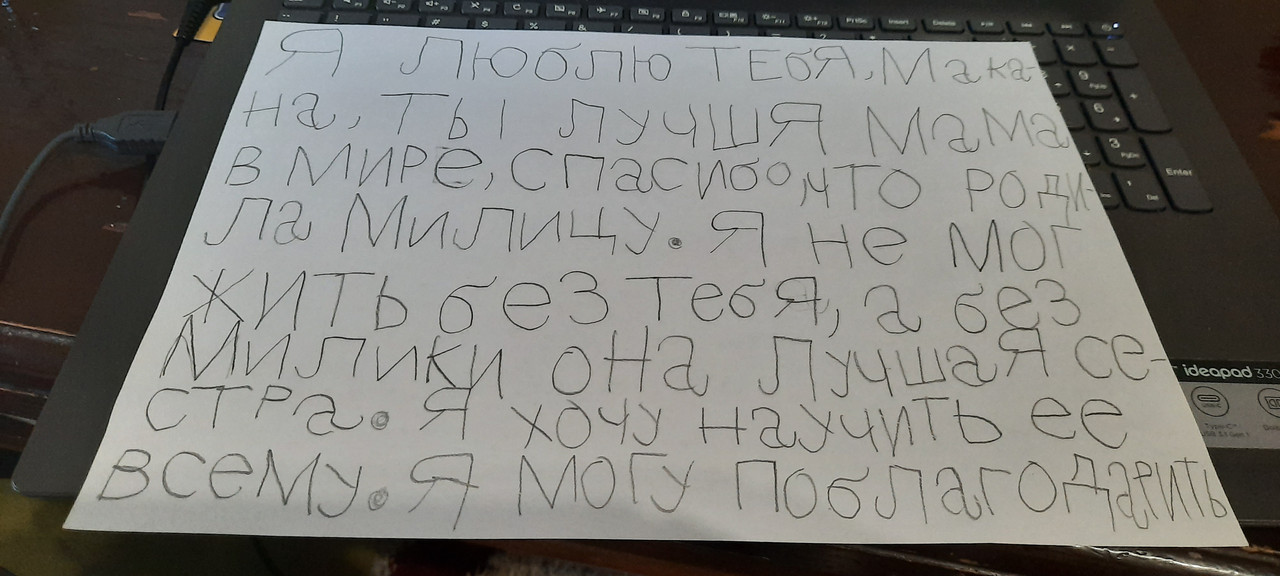 Я люблю тебя, Мака-
на, ты лучшя мама
в мире, спасибо, что роди-
ла Милицу. Я не мог
жить без тебя, а без
Милики она лучшая се-
стра. Я хочу научить ее
всему. Я могу поблагодарить
ideapad 330
Enter